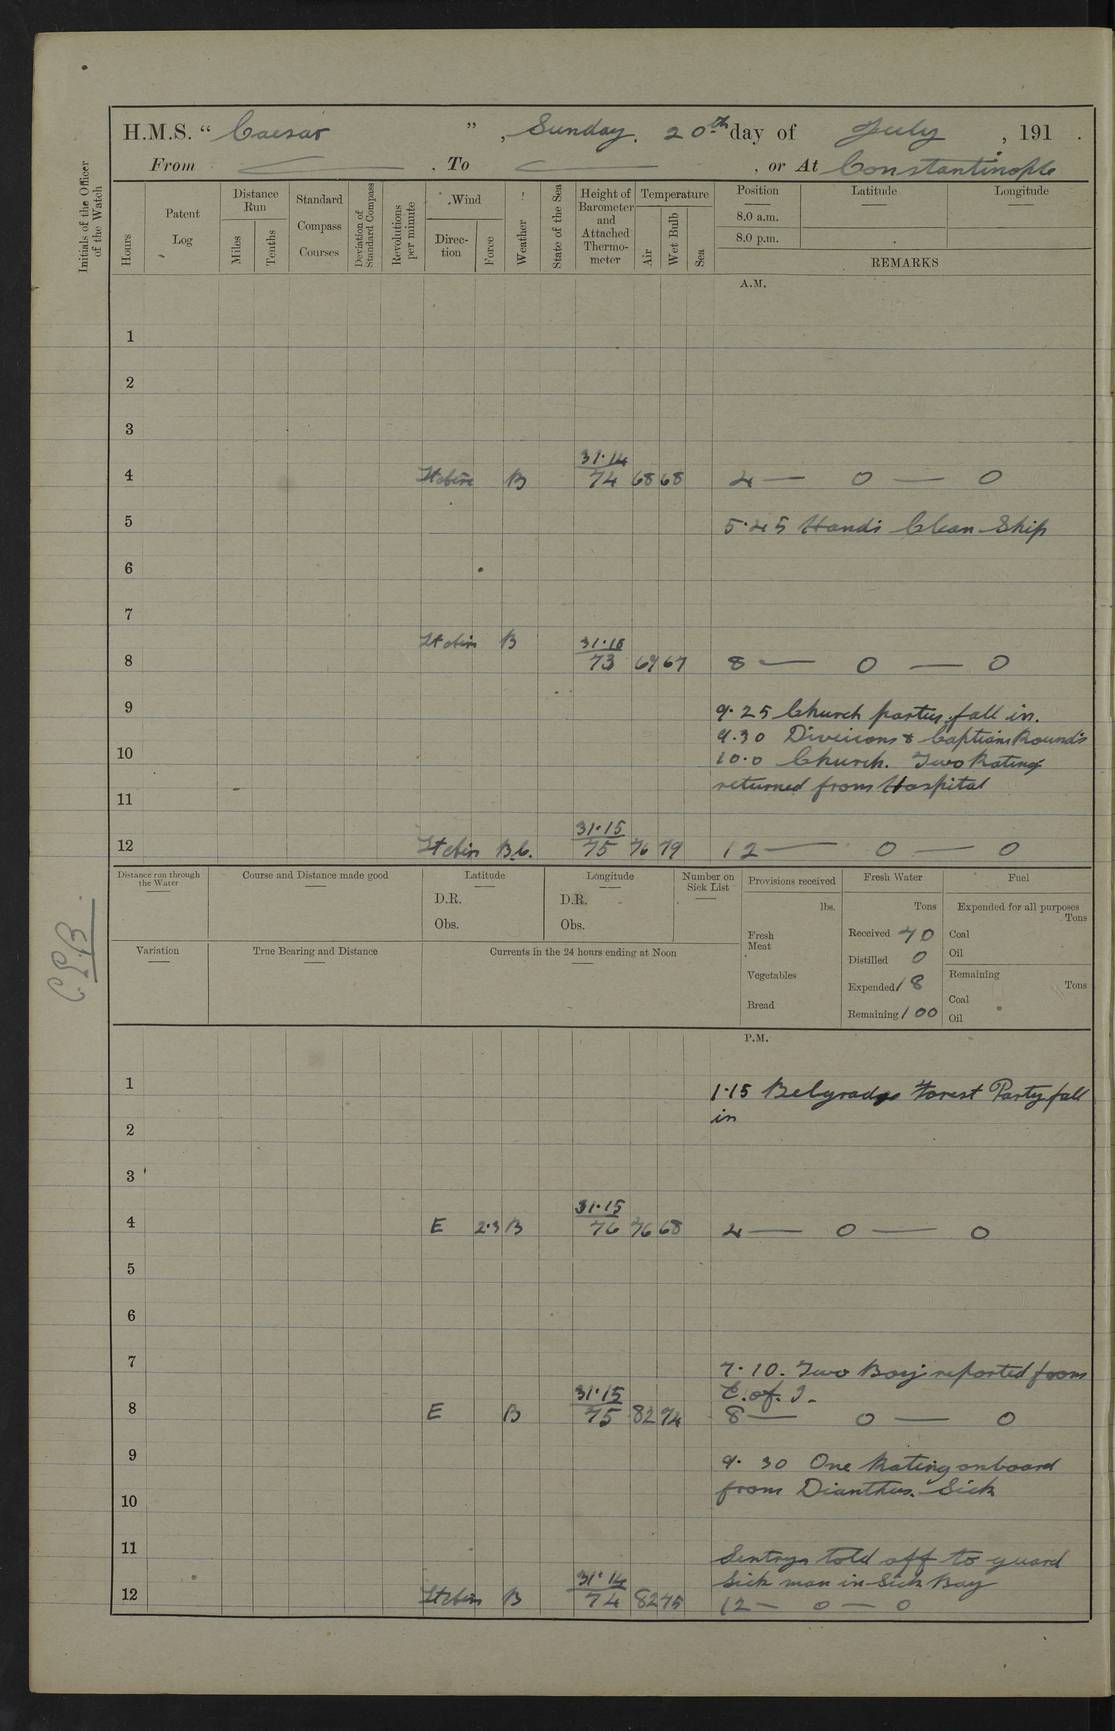 H.M.S. “ Caesar ” , Sunday. 20th day of July , 191 .
From —— . To —— , or At Constantinople
Initials of the Officer of the Watch
Hours
Patent Log
Distance Run
Miles
Tenths
Standard Compass Courses
Deviation of Standard Compass
Revolutions per minute
Wind
Direction
Force
Weather
State of the Sea
Height of Barometer and Attached Thermometer
Temperature
Air
Wet Bulb
Sea
Position
Latitude
Longitude
8.0 a.m.
8.0 p.m.
REMARKS
A.M.
1
2
3
31·14
4 B 74 68 68 4 — 0 — 0
5 5·45 Hands Clean Ship
6
7
B 31·18
8 73 69 67 8 — 0 — 0
9 9·25 Church partys fall in.
9.30 Divisions & Captians Rounds
10 10·0 Church. Two Ratings
returned from Hospital
11
31·15
12 B.C. 75 76 79 12 — 0 — 0
Distance run through the Water
Course and Distance made good
Latitude
D.R.
Obs.
Longitude
D.R.
Obs.
Number on Sick List
Provisions received
lbs.
Fresh Meat
Vegetables
Bread
Fresh Water
Tons
Received 40
Distilled 0
Expended 18
Remaining 100
Fuel
Expended for all purposes
Tons
Coal
Oil
Remaining
Tons
Coal
Oil
Variation
True Bearing and Distance
Currents in the 24 hours ending at Noon
P.M.
1 1·15 Belgrade Forest Party fall
in
2
3
31·15
4 E 2·3 B 76 76 68 4 — 0 — 0
5
6
7 7·10. Two Boys reported from
31·15 C. of. I.
8 E B 75 82 74 8 — 0 — 0
9 9· 30 One Rating onboard
from Dianthus. Sick
10
11 Sentrys told off to guard
31·14 Sick man in Sick Bay
12 B 74 82 75 12 — 0 — 0